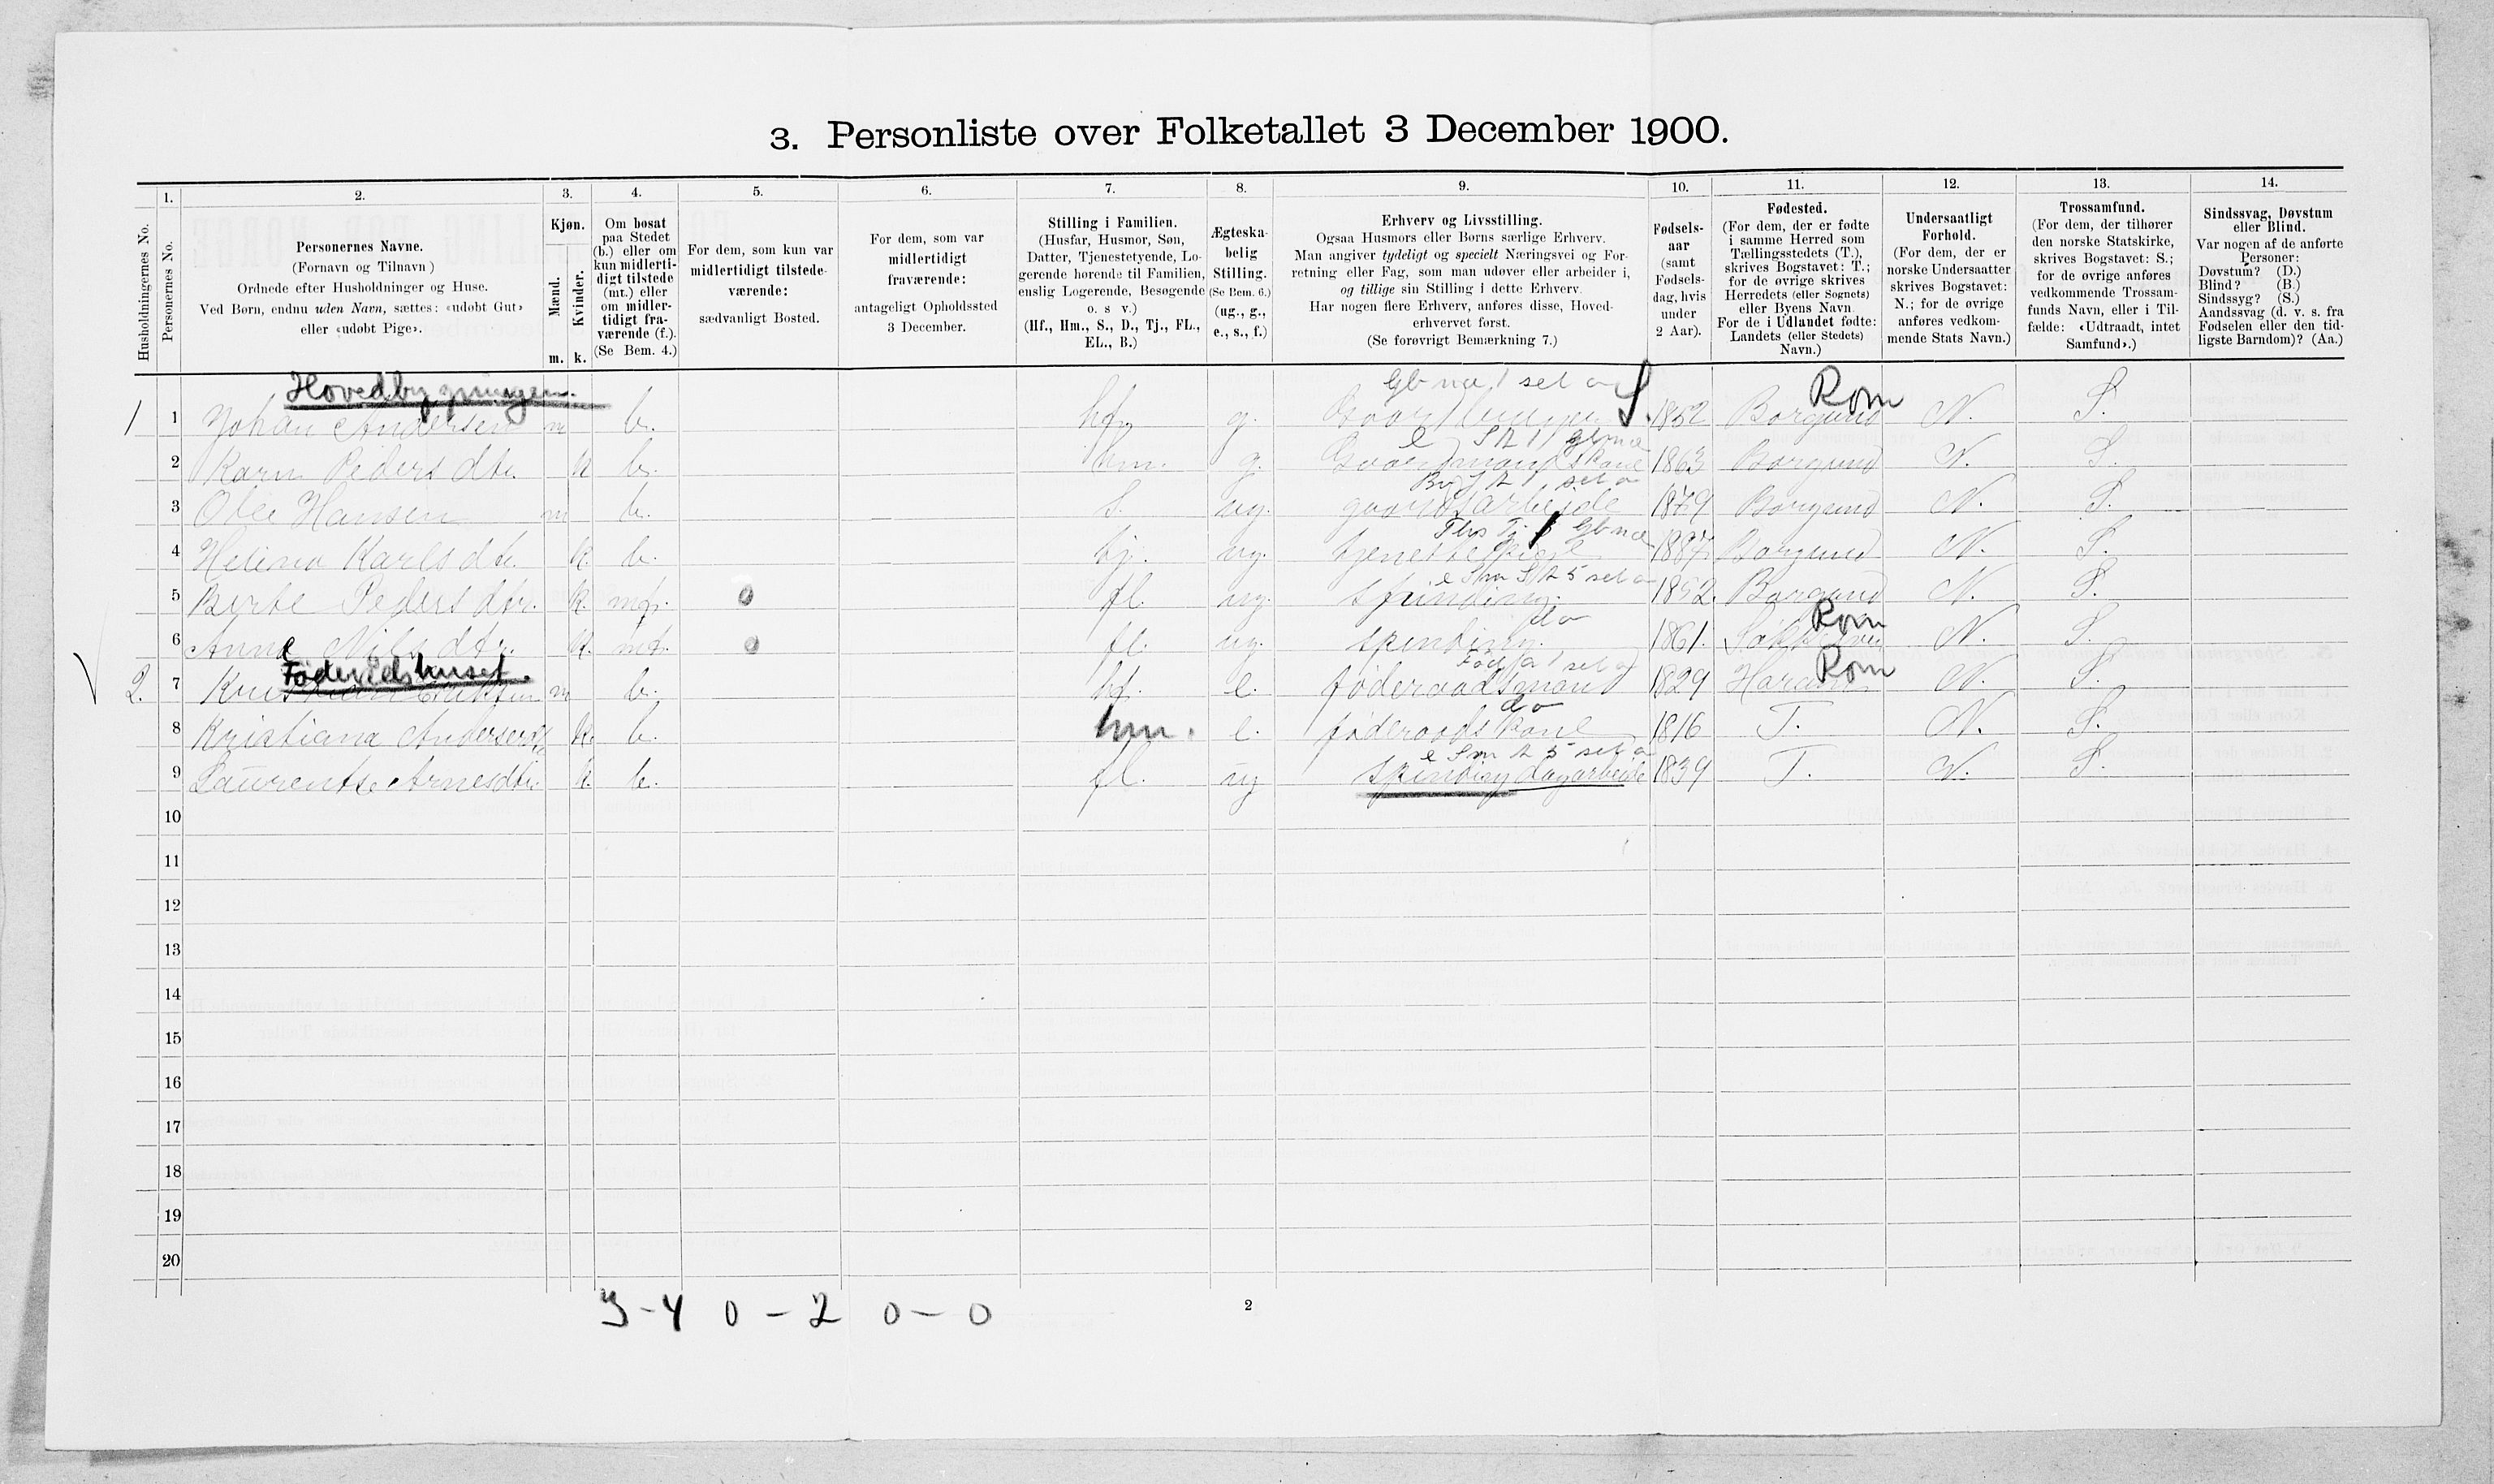 3. Personliste over Folketallet 3 December 1900.
1. 2. 3. 4. 5. 6. 7. 8. 9. 10. 11. 12. 13. 14.
Husholdningernes No.
Personernes No.
Personernes Navne.
(Fornavn og Tilnavn)
Ordnede efter Husholdninger og Huse.
Ved Børn, endnu uden Navn, sættes: «udøbt Gut»
eller «udøbt Pige».
Kjøn.
Mænd.
Kvinder.
m. k.
Om bosat
paa Stedet
(b.) eller om
kun midlerti-
digt tilstede
(mt.) eller
om midler-
tidigt fra-
værende (f.).
(Se Bem. 4.)
For dem, som kun var
midlertidigt tilstede-
værende:
sædvanligt Bosted.
For dem, som var
midlertidigt
fraværende:
antageligt Opholdssted
3 December.
Stilling i Familien.
(Husfar, Husmor, Søn,
Datter, Tjenestetyende, Lo-
gerende hørende til Familien,
enslig Logerende, Besøgende
o. s v.)
(Hf., Hm., S., D., Tj., FL.,
EL., B.)
Ægteska-
belig
Stilling.
(Se Bem. 6.)
(ug., g.,
e., s., f.)
Erhverv og Livsstilling.
Ogsaa Husmors eller Børns særlige Erhverv.
Man angiver tydeligt og specielt Næringsvei og For-
retning eller Fag, som man udøver eller arbeider i,
og tillige sin Stilling i dette Erhverv.
Har nogen flere Erhverv, anføres disse, Hoved-
erhvervet først.
(Se forøvrigt Bemærkning 7.)
Fødsels-
aar
(samt
Fødsels-
dag, hvis
under
2 Aar).
Fødested.
(For dem, der er fødte
i samme Herred som
Tællingsstedets (T.),
skrives Bogstavet: T.;
for de øvrige skrives
Herredets (eller Sognets)
eller Byens Navn.
For de i Udlandet fødte:
Landets (eller Stedets)
Navn.)
Undersaatligt
Forhold.
(For dem, der er
norske Undersaatter
skrives Bogstavet:
N.; for de øvrige
anføres vedkom-
mende Stats Navn.)
Trossamfund.
(For dem, der tilhører
den norske Statskirke,
skrives Bogstavet: S.;
for de øvrige anføres
vedkommende Trossam-
funds Navn, eller i Til-
fælde: «Udtraadt, intet
Samfund».)
Sindssvag, Døvstum
eller Blind.
Var nogen af de anførte
Personer:
Døvstum? (D.)
Blind? (B.)
Sindssyg? (S.)
Aandssvag (d. v. s. fra
Fødselen eller den tid-
ligste Barndom)? (Aa.)
Hovedbygningen. Rom
1 1 Johan Andersen m b. hf. g. 1852 Borgund N. S.
2 Karn Pedersdtr. k b. hm. g. Gaardmandskone 1863 Borgund N. S.
3 Ole Hansen m b. s. ug. gaardsarbeide 1879 Borgund N. S.
4 Helena Karlsdtr. k. b. tj. ug. tjenestepige Borgund N. S.
5 Berte Pedersdtr. k. mt. 0 fl. ug. spinding. 1852. Borgund N. S.
do Rom
6 Anna Nilsdtr. k. mt. 0 fl. ug. spinding. 1861. N. S.
Føderådshuset. Rom
2. 7 m b. hf. e. føderaadsmand 1829 Haram N. S.
do
8 Kristiana k. b. hm. e. føderaadskone 1816 T. N. S.
9 Laurentse Arnesdtr. k. b. fl. ug spinding dagarbeide 1839 T. N. S.
10
11
12
13
14
15
16
17
18
19
20
3-4 0-2 0-0
2